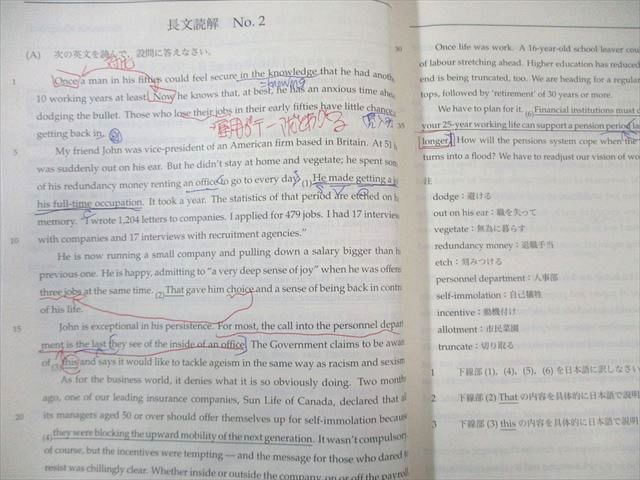 長文読解 No.2
(A) 次の英文を読んで, 設問に答えなさい。
対比
1 Once a man in his fifties could feel secure in the knowledge that he had
= knowing
10 working years at least. Now he knows that, at best, he has an anxious time
dodging the bullet. Those who lose their jobs in their early fifties have little
getting back in.
5 My friend John was vice-president of an American firm based in Britain. At 51
was suddenly out on his ear. But he didn't stay at home and vegetate; he spent
of his redundancy money renting an office to go to every day. (1)He made getting a
his full-time occupation. It took a year. The statistics of that period are etched on
memory. "I wrote 1,204 letters to companies. I applied for 479 jobs. I had 17
10 with companies and 17 interviews with recruitment agencies."
He is now running a small company and pulling down a salary bigger than
previous one. He is happy, admitting to "a very deep sense of joy" when he was
three jobs at the same time. (2)That gave him choice and a sense of being back in
of his life.
15 John is exceptional in his persistence. For most, the call into the personnel
ment is the last they see of the inside of an office. The Government claims to be
of (3)this and says it would like to tackle ageism in the same way as racism and sexism
As for the business world, it denies what it is so obviously doing. Two
ago, one of our leading insurance companies, Sun Life of Canada, declared that
20 its managers aged 50 or over should offer themselves up for self-immolation
(4)they were blocking the upward mobility of the next generation. It wasn't compulsory
of course, but the incentives were tempting — and the message for those who dared
resist was chillingly clear. Whether inside or outside the company, on or off the
30 Once life was work. A 16-year-old school leaver
of labour stretching ahead. Higher education has reduced
end is being truncated, too. We are heading for a regular
tops, followed by 'retirement' of 30 years or more.
We have to plan for it. (6)Financial institutions must
35 your 25-year working life can support a pension period
longer. How will the pensions system cope when the
turns into a flood? We have to readjust our vision of
注
dodge：避ける
out on his ear：職を失って
vegetate：無為に暮らす
redundancy money：退職手当
etch：刻みつける
personnel department：人事部
self-immolation：自己犠牲
incentive：動機付け
allotment：市民菜園
truncate：切り取る
1 下線部 (1), (4), (5), (6) を日本語に訳しなさい
2 下線部 (2) That の内容を具体的に日本語で説明
3 下線部 (3) this の内容を具体的に日本語で説明